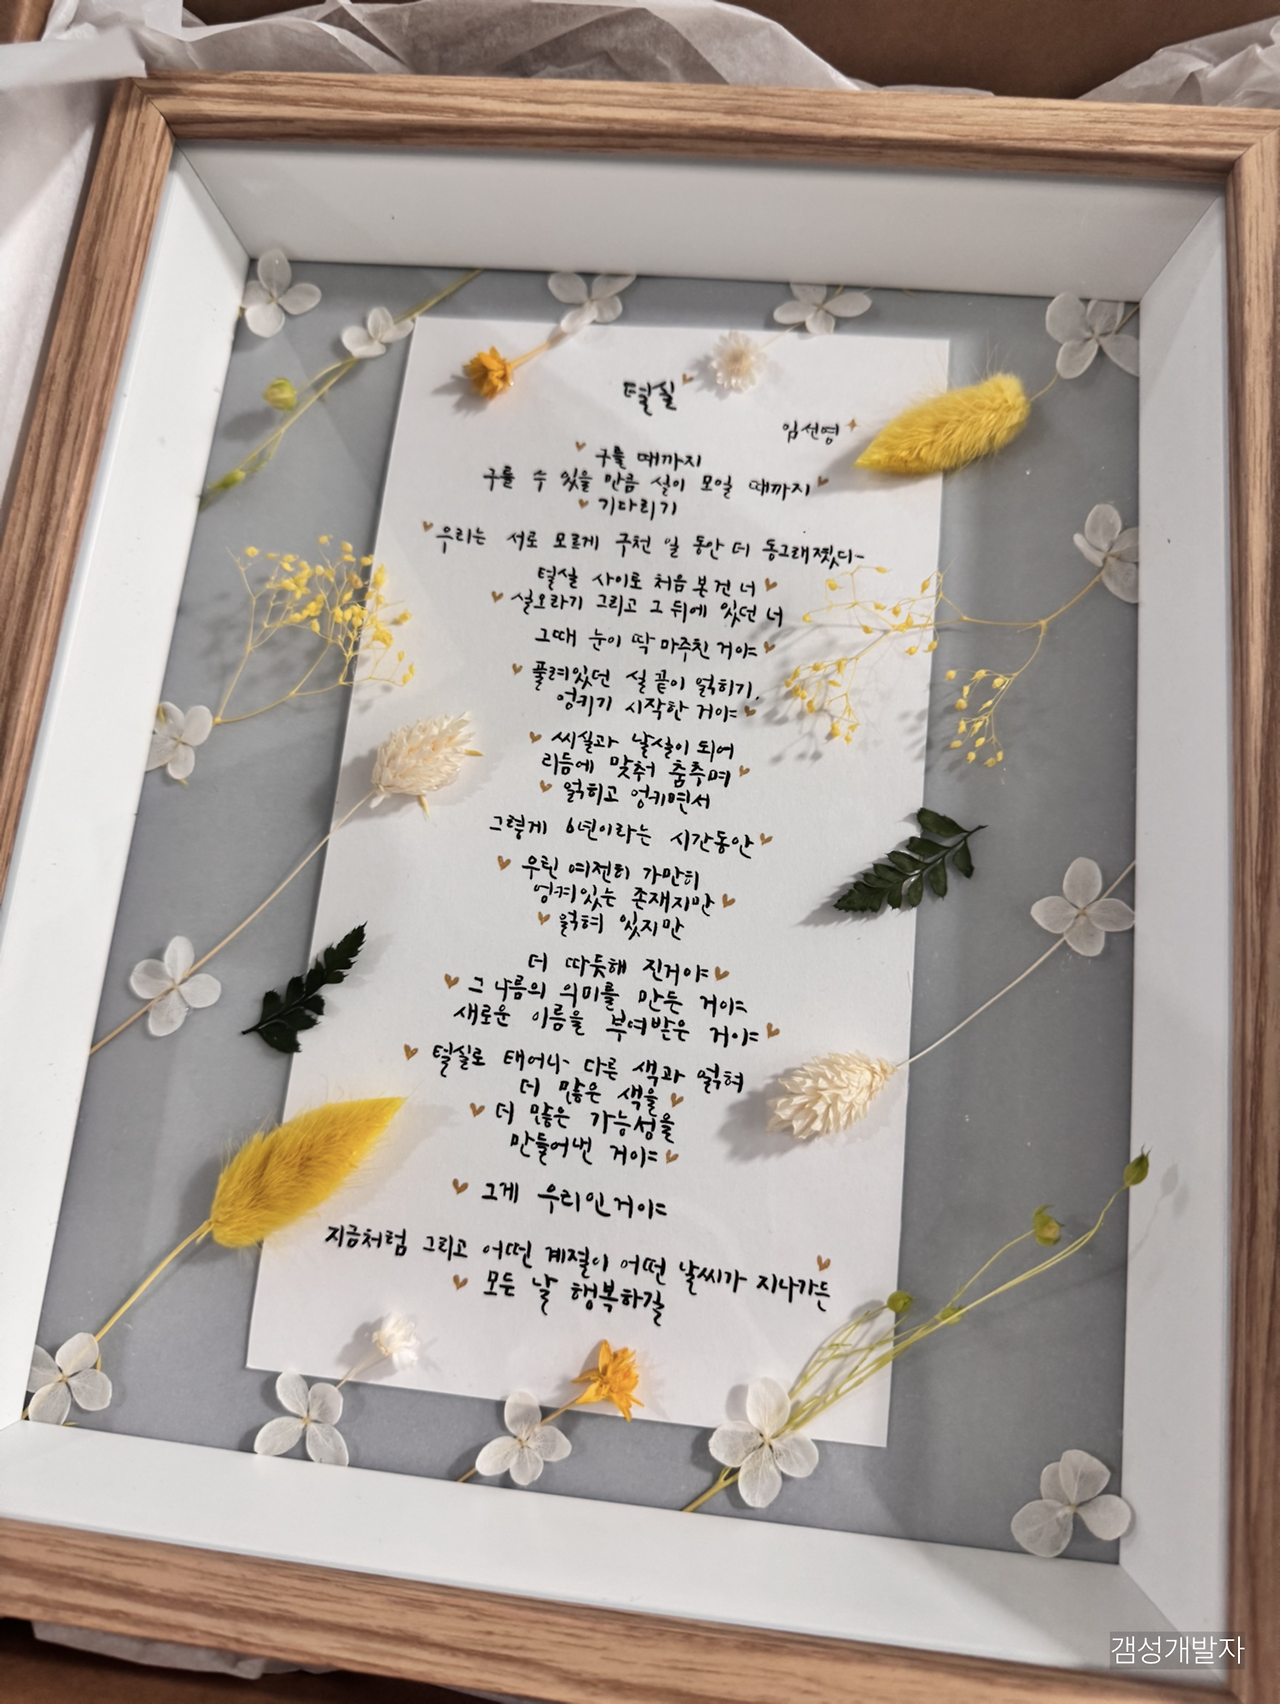 털실
임선영
구를 때까지
구를 수 있을 만큼 실이 모일 때까지
기다리기
우리는 서로 모르게 구천 일 동안 더 동그래졌다
털실 사이로 처음 본 건 너
실오라기 그리고 그 뒤에 있던 너
그때 눈이 딱 마주친 거야
풀려있던 실 끝이 얽히기,
엉키기 시작한 거야
씨실과 날실이 되어
리듬에 맞춰 춤추며
얽히고 엉키면서
그렇게 6년이라는 시간동안
우린 여전히 가만히
엉켜있는 존재지만
얽혀 있지만
더 따듯해 진거야
그 나름의 의미를 만든 거야
새로운 이름을 부여받은 거야
털실로 태어나 다른 색과 얽혀
더 많은 색을
더 많은 가능성을
만들어낸 거야
그게 우리인거야
지금처럼 그리고 어떤 계절이 어떤 날씨가 지나가든
모든 날 행복하길
갬성개발자